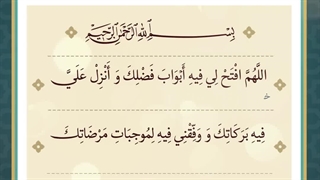 بِسْمِ اللَّهِ الرَّحْمَٰنِ الرَّحِيمِ
اللَّهُمَّ افْتَحْ لِي فِيهِ أَبْوَابَ فَضْلِكَ وَ أَنْزِلْ عَلَيَّ
فِيهِ بَرَكَاتِكَ وَ وَفِّقْنِي فِيهِ لِمُوجِبَاتِ مَرْضَاتِكَ